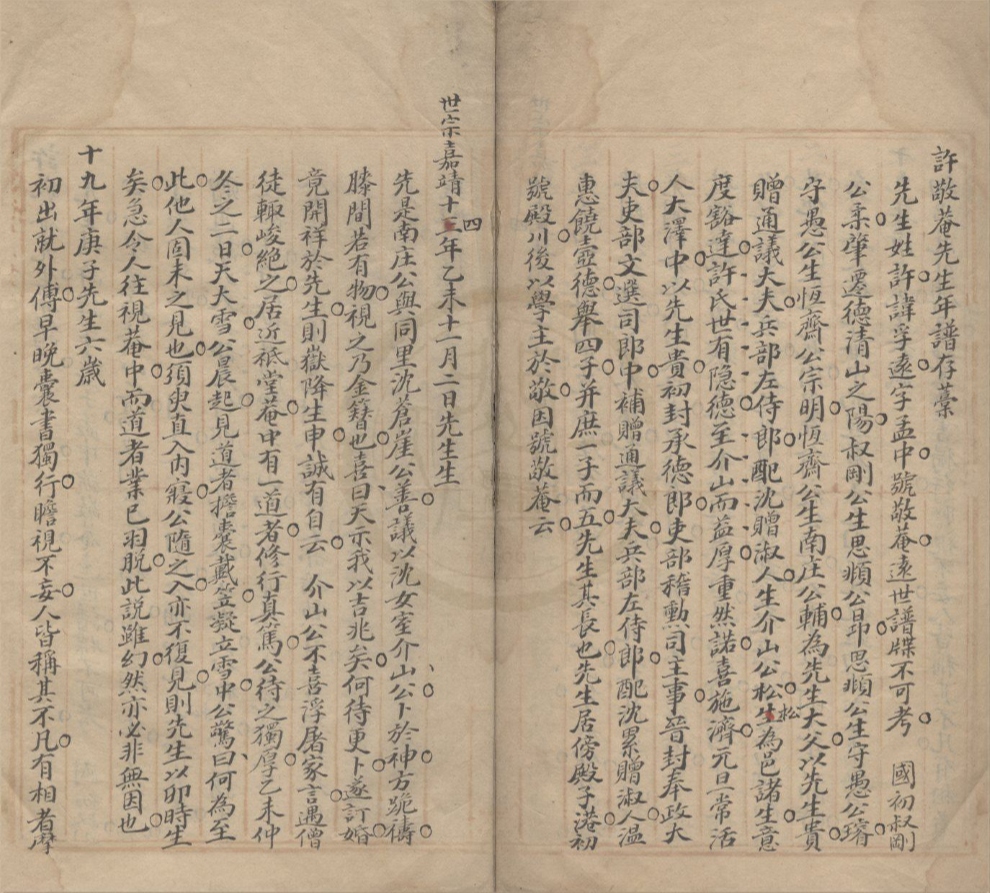 許敬庵先生年譜存藳
先生姓許諱孚遠字孟中號敬菴遠世譜牒不可考　國初叔剛
公柔肇遷德清山之陽叔剛公生思順公昂思順公生守愚公璿
守愚公生恆齋公宗明恆齋公生南庄公輔為先生大父以先生貴
贈通議大夫兵部左侍郎配沈贈淑人生介山公松松為邑諸生意
度豁達許氏世有隱德至介山而益厚重然諾喜施濟元旦常活
人大澤中以先生貴初封承德郎吏部稽勳司主事晉封奉政大
夫吏部文選司郎中補贈通議大夫兵部左侍郎配沈累贈淑人溫
惠饒壼德舉四子并庶一子而五先生其長也先生居傍殿子港初
號殿川後以學主於敬因號敬菴云
世宗嘉靖十四年乙未十一月二日先生生
先是南庄公與同里沈蒼崖公善議以沈女室介山公卜於神方跪禱
膝間若有物視之乃金簪也喜曰天示我以吉兆矣何待更卜遂訂婚
竟開祥於先生則嶽降生申誠有自云　介山公不喜浮屠家言遇僧
徒輒峻絕之居近祗堂菴中有一道者修行真篤公待之獨厚乙未仲
冬之二日天大雪公晨起見道者擔囊戴笠凝立雪中公驚曰何為至
此他人固未之見也須臾直入內寢公隨之入亦不復見則先生以卯時生
矣急令人往視菴中而道者業已羽脫此說雖幻然亦必非無因也
十九年庚子先生六歲
初出就外傅早晚囊書獨行瞻視不妄人皆稱其不凡有相者摩